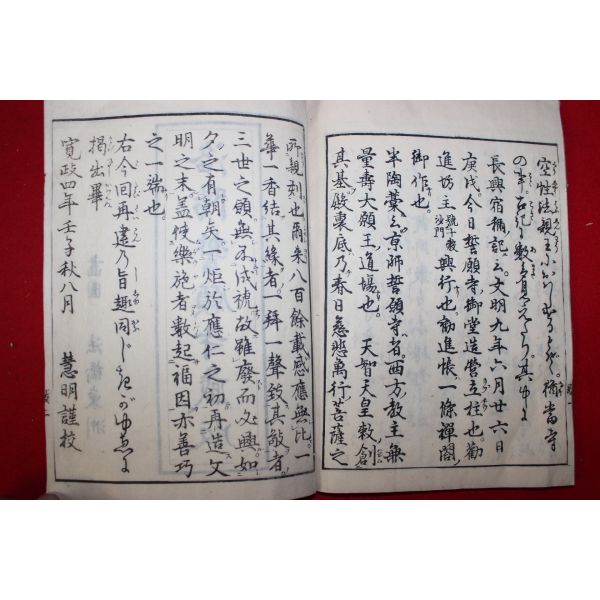 空性法親王
の事古記に数々見えたり其
長興宿禰記云文明九年六月廿六日
庚戌今日誓願寺御堂造営立柱也勧
進坊主號十穀沙門興行也勧進帳一條禅閤
御作也
半陶藁云京師誓願寺者西方教主無
量壽大願王道場也天智天皇敕創
其基殿裏底乃春日慈悲萬行菩薩之
所親刻也爾来八百餘載感應無比一
華一香結其縁者一拜一聲致其敬者
三世之願無不成就故雖廢而必興如
夕之有朝矣干炬於應仁之初再造文
明之末蓋使樂施者數起福因亦善巧
之一端也
右今回再建乃旨趣同じ
掲出畢
寛政四年壬子秋八月 慧明謹校